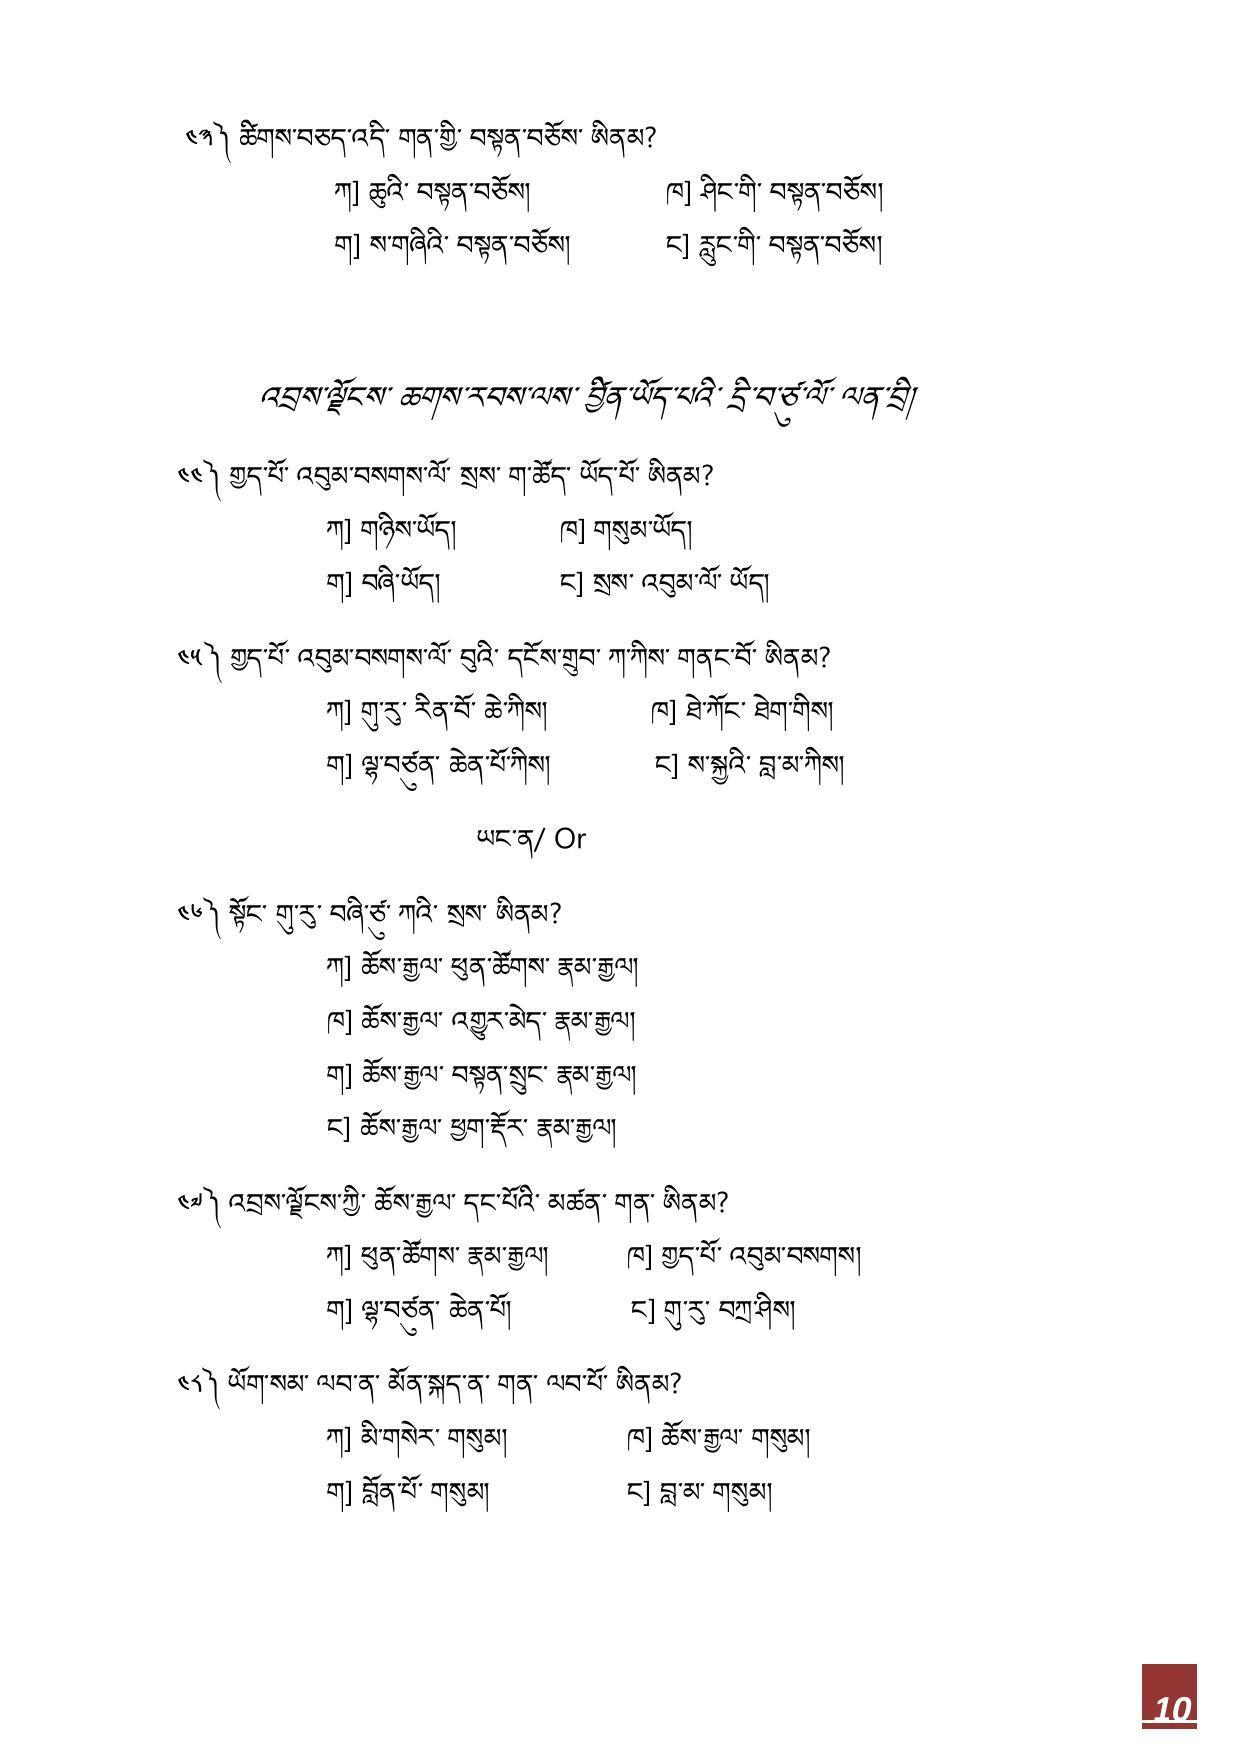 ༤༣༽ ཚིགས་བཅད་འདི་ གན་གྱི་ བསྟན་བཅོས་ ཨིནམ?
ཀ] ཆུའི་ བསྟན་བཅོས། ཁ] ཤིང་གི་ བསྟན་བཅོས།
ག] ས་གཞིའི་ བསྟན་བཅོས། ང] རླུང་གི་ བསྟན་བཅོས།
འབྲས་ལྗོངས་ ཆགས་རབས་ལས་ བྱིན་ཡོད་པའི་ དྲི་བ་ཙུ་ལོ་ ལན་བྲི།
༤༤༽ གྱད་པོ་ འབུམ་བསགས་ལོ་ སྲས་ ག་ཚོད་ ཡོད་པོ་ ཨིནམ?
ཀ] གཉིས་ཡོད། ཁ] གསུམ་ཡོད།
ག] བཞི་ཡོད། ང] སྲས་ འབུམ་ལོ་ ཡོད།
༤༥༽ གྱད་པོ་ འབུམ་བསགས་ལོ་ བུའི་ དངོས་གྲུབ་ ཀ་ཀིས་ གནང་བོ་ ཨིནམ?
ཀ] གུ་རུ་ རིན་བོ་ ཆེ་ཀིས། ཁ] ཐེ་ཀོང་ ཐེག་གིས།
ག] ལྷ་བཙུན་ ཆེན་པོ་ཀིས། ང] ས་སྐྱའི་ བླ་མ་ཀིས།
ཡང་ན/ Or
༤༦༽ སྟོང་ གུ་རུ་ བཞི་ཙུ་ ཀའི་ སྲས་ ཨིནམ?
ཀ] ཆོས་རྒྱལ་ ཕུན་ཚོགས་ རྣམ་རྒྱལ།
ཁ] ཆོས་རྒྱལ་ འགྱུར་མེད་ རྣམ་རྒྱལ།
ག] ཆོས་རྒྱལ་ བསྟན་སྲུང་ རྣམ་རྒྱལ།
ང] ཆོས་རྒྱལ་ ཕྱག་རྡོར་ རྣམ་རྒྱལ།
༤༧༽ འབྲས་ལྗོངས་ཀྱི་ ཆོས་རྒྱལ་ དང་པོའི་ མཚན་ གན་ ཨིནམ?
ཀ] ཕུན་ཚོགས་ རྣམ་རྒྱལ། ཁ] གྱད་པོ་ འབུམ་བསགས།
ག] ལྷ་བཙུན་ ཆེན་པོ། ང] གུ་རུ་ བཀྲ་ཤིས།
༤༨༽ ཡོག་སམ་ ལབ་ན་ མོན་སྐད་ན་ གན་ ལབ་པོ་ ཨིནམ?
ཀ] མི་གསེར་ གསུམ། ཁ] ཆོས་རྒྱལ་ གསུམ།
ག] བློན་པོ་ གསུམ། ང] བླ་མ་ གསུམ།
10